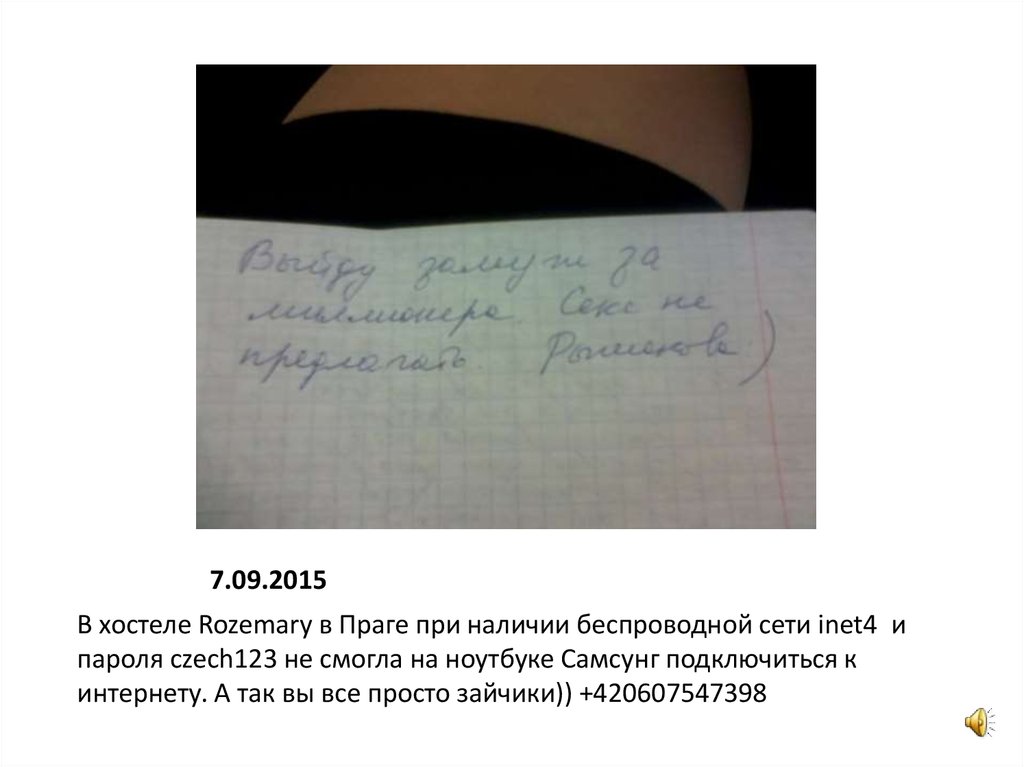 Выйду замуж за
миллионера. Секс не
предлагать. Рыжакова)
7.09.2015
В хостеле Rozemary в Праге при наличии беспроводной сети inet4 и
пароля czech123 не смогла на ноутбуке Самсунг подключиться к
интернету. А так вы все просто зайчики)) +420607547398